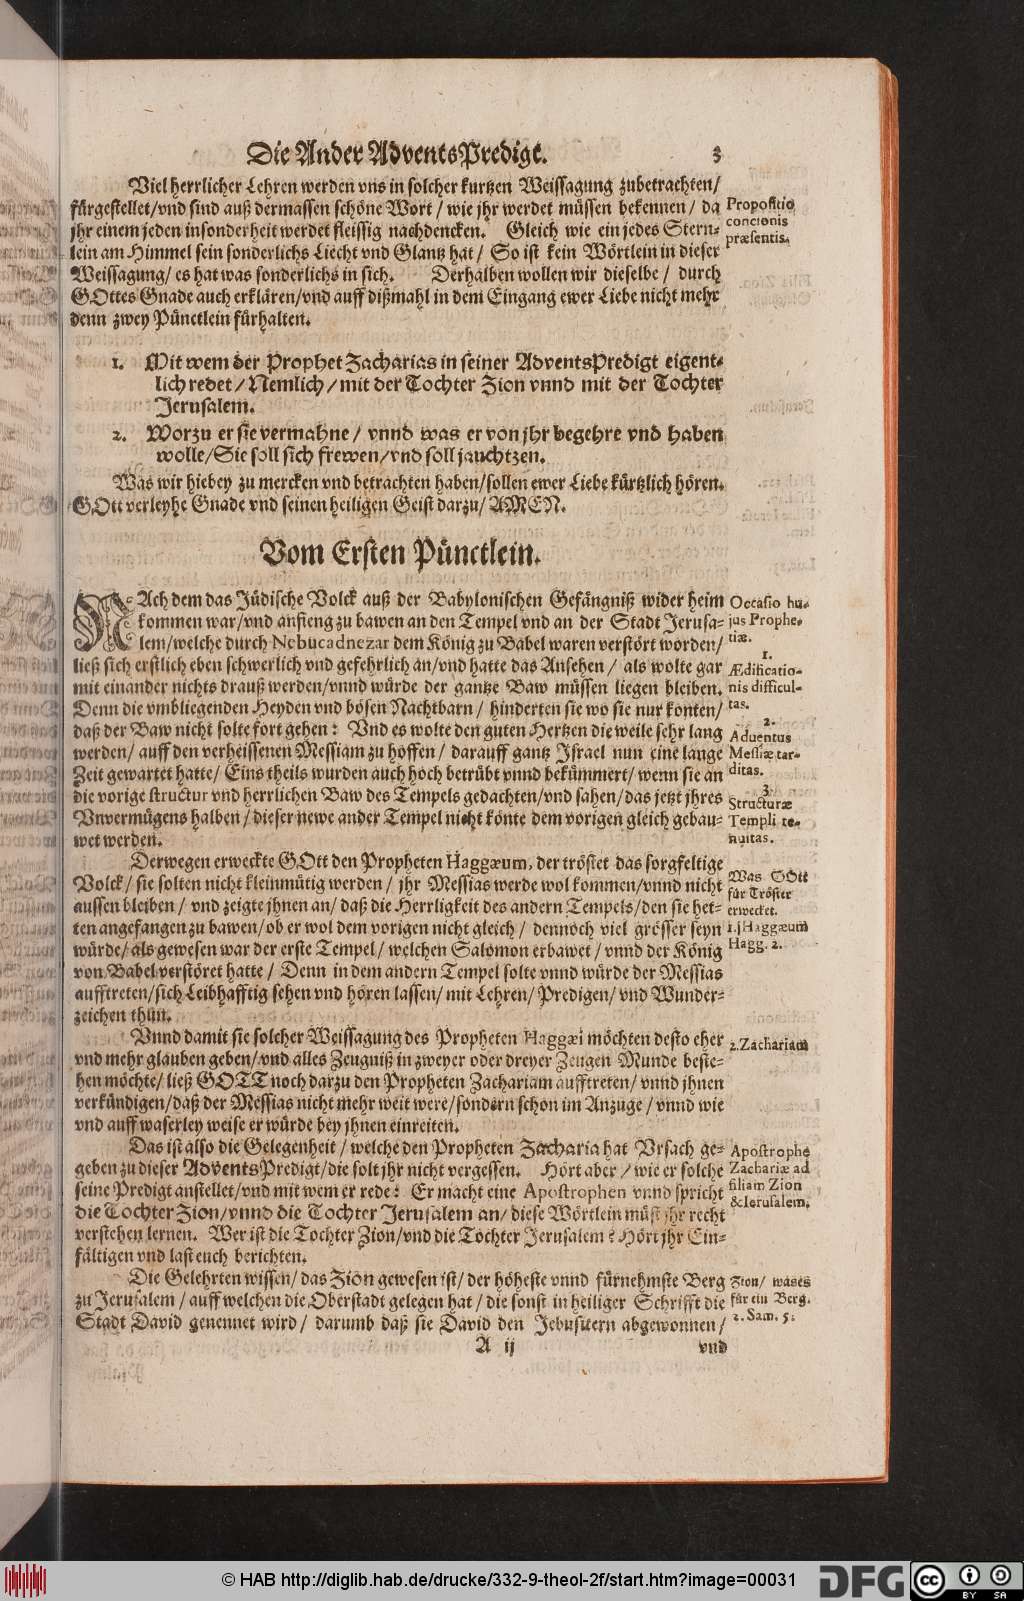 Die Ander AdventsPredigt. 3
Viel herrlicher Lehren werden vns in solcher kurtzen Weissagung zubetrachten/
fürgestellet/vnd sind auß dermassen schöne Wort / wie jhr werdet müssen bekennen / da
jhr einem jeden insonderheit werdet fleissig nachdencken. Gleich wie ein jedes Stern-
lein am Himmel sein sonderlichs Liecht vnd Glantz hat / So ist kein Wörtlein in dieser
Weissagung/ es hat was sonderlichs in sich. Derhalben wollen wir dieselbe / durch
GOttes Gnade auch erklären/vnd auff dißmahl in dem Eingang ewer Liebe nicht mehr
denn zwey Pünctlein fürhalten.
Propositio
concionis
præsentis.
1. Mit wem der Prophet Zacharias in seiner AdventsPredigt eigent-
lich redet / Nemlich / mit der Tochter Zion vnnd mit der Tochter
Jerusalem.
2. Worzu er sie vermahne / vnnd was er von jhr begehre vnd haben
wolle/Sie soll sich frewen/vnd soll jauchtzen.
Was wir hiebey zu mercken vnd betrachten haben/sollen ewer Liebe kürtzlich hören.
GOtt verleyhe Gnade vnd seinen heiligen Geist darzu/ AMEN.
Vom Ersten Pünctlein.
NAch dem das Jüdische Volck auß der Babylonischen Gefängniß wider heim
kommen war/vnd anfieng zu bawen an den Tempel vnd an der Stadt Jerusa-
lem/welche durch Nebucadnezar dem König zu Babel waren verstört worden/
ließ sich erstlich eben schwerlich vnd gefehrlich an/vnd hatte das Ansehen / als wolte gar
mit einander nichts drauß werden/vnnd würde der gantze Baw müssen liegen bleiben.
Denn die vmbliegenden Heyden vnd bösen Nachtbarn / hinderten sie wo sie nur konten/
daß der Baw nicht solte fort gehen: Vnd es wolte den guten Hertzen die weile sehr lang
werden/ auff den verheissenen Messiam zu hoffen / darauff gantz Israel nun eine lange
Zeit gewartet hatte/ Eins theils wurden auch hoch betrübt vnnd bekümmert/ wenn sie an
die vorige structur vnd herrlichen Baw des Tempels gedachten/vnd sahen/das jetzt jhres
Vnvermügens halben / dieser newe ander Tempel nicht könte dem vorigen gleich gebau-
wet werden.
Occasio hu-
jus Prophe-
tiæ.
1.
Ædificatio-
nis difficul-
tas.
2.
Adventus
Messiæ tar-
ditas.
3.
Structuræ
Templi te-
nuitas.
Derwegen erweckte GOtt den Propheten Haggæum, der tröstet das sorgfeltige
Volck / sie solten nicht kleinmütig werden / jhr Messias werde wol kommen/vnnd nicht
aussen bleiben / vnd zeigte jhnen an/ daß die Herrligkeit des andern Tempels/den sie het-
ten angefangen zu bawen/ob er wol dem vorigen nicht gleich / dennoch viel grösser seyn
würde/ als gewesen war der erste Tempel / welchen Salomon erbawet / vnnd der König
von Babel verstöret hatte / Denn in dem andern Tempel solte vnnd würde der Messias
aufftreten/sich Leibhafftig sehen vnd hören lassen/ mit Lehren/ Predigen/ vnd Wunder-
zeichen thun.
Was GOtt
für Tröster
erwecket.
1. Haggæum
Hagg. 2.
Vnnd damit sie solcher Weissagung des Propheten Haggæi möchten desto eher
vnd mehr glauben geben/vnd alles Zeugniß in zweyer oder dreyer Zeugen Munde beste-
hen möchte/ ließ GOTT noch darzu den Propheten Zachariam aufftreten/ vnnd jhnen
verkündigen/daß der Messias nicht mehr weit were/sondern schon im Anzuge / vnnd wie
vnd auff waserley weise er würde bey jhnen einreiten.
2. Zachariam
Das ist also die Gelegenheit / welche den Propheten Zacharia hat Vrsach ge-
geben zu dieser AdventsPredigt/die solt jhr nicht vergessen. Hört aber / wie er solche
seine Predigt anstellet/vnd mit wem er rede: Er macht eine Apostrophen vnnd spricht
die Tochter Zion/vnnd die Tochter Jerusalem an/ diese Wörtlein müst jhr recht
verstehen lernen. Wer ist die Tochter Zion/vnd die Tochter Jerusalem? Hört jhr Ein-
fältigen vnd last euch berichten.
Apostrophe
Zachariæ ad
filiam Zion
& Ierusalem.
Die Gelehrten wissen/ das Zion gewesen ist/ der höheste vnnd fürnehmste Berg
zu Jerusalem / auff welchen die Oberstadt gelegen hat / die sonst in heiliger Schrifft die
Stadt David genennet wird / darumb daß sie David den Jebusitern abgewonnen /
Zion/ was es
für ein Berg.
2. Sam. 5.
A ij vnd
© HAB http://diglib.hab.de/drucke/332-9-theol-2f/start.htm?image=00031
DFG
cc BY SA